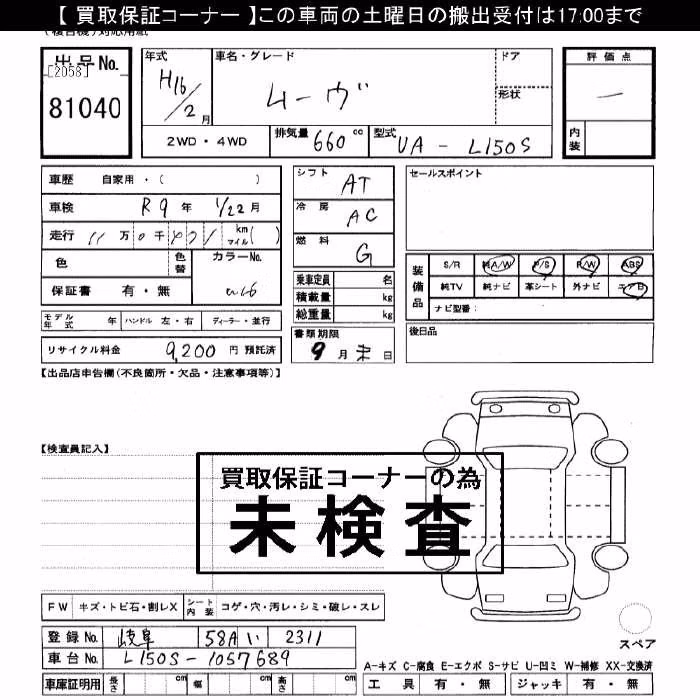 【 買取保証コーナー 】この車両の土曜日の搬出受付は17:00まで
(複合機)対応用紙
出品No.
[2058]
81040
年式 H16/2月
車名・グレード ムーヴ
ドア
形状
評価点
一
内装
2WD・4WD
排気量 660 cc
型式 UA - L150S
車歴 自家用・( )
車検 R9年 1/22月
走行 11万0千 km マイル( )
色 色替 カラーNo.
保証書 有・無
モデル年式 年 ハンドル 左・右 ディーラー・並行
リサイクル料金 9,200 円 預託済
シフト AT
冷房 AC
燃料 G
乗車定員 名
積載量 kg
総重量 kg
書類期限
9月末日
セールスポイント
装備品
S/R 純A/W P/S P/W ABS
純TV 純ナビ 革シート 外ナビ エアB
ナビ型番:
後日品
【出品店申告欄(不良箇所・欠品・注意事項等)】
【検査員記入】
買取保証コーナーの為
未検査
FW キズ・トビ石・割レX シート内装 コゲ・穴・汚レ・シミ・破レ・スレ
スペア
登録No. 岐阜 58A い 2311
車台No. L150S-1057689
A-キズ C-腐食 E-エクボ S-サビ U-凹ミ W-補修 XX-交換済
車庫証明用 長さ cm 幅 cm 高さ cm
工具 有・無 ジャッキ 有・無